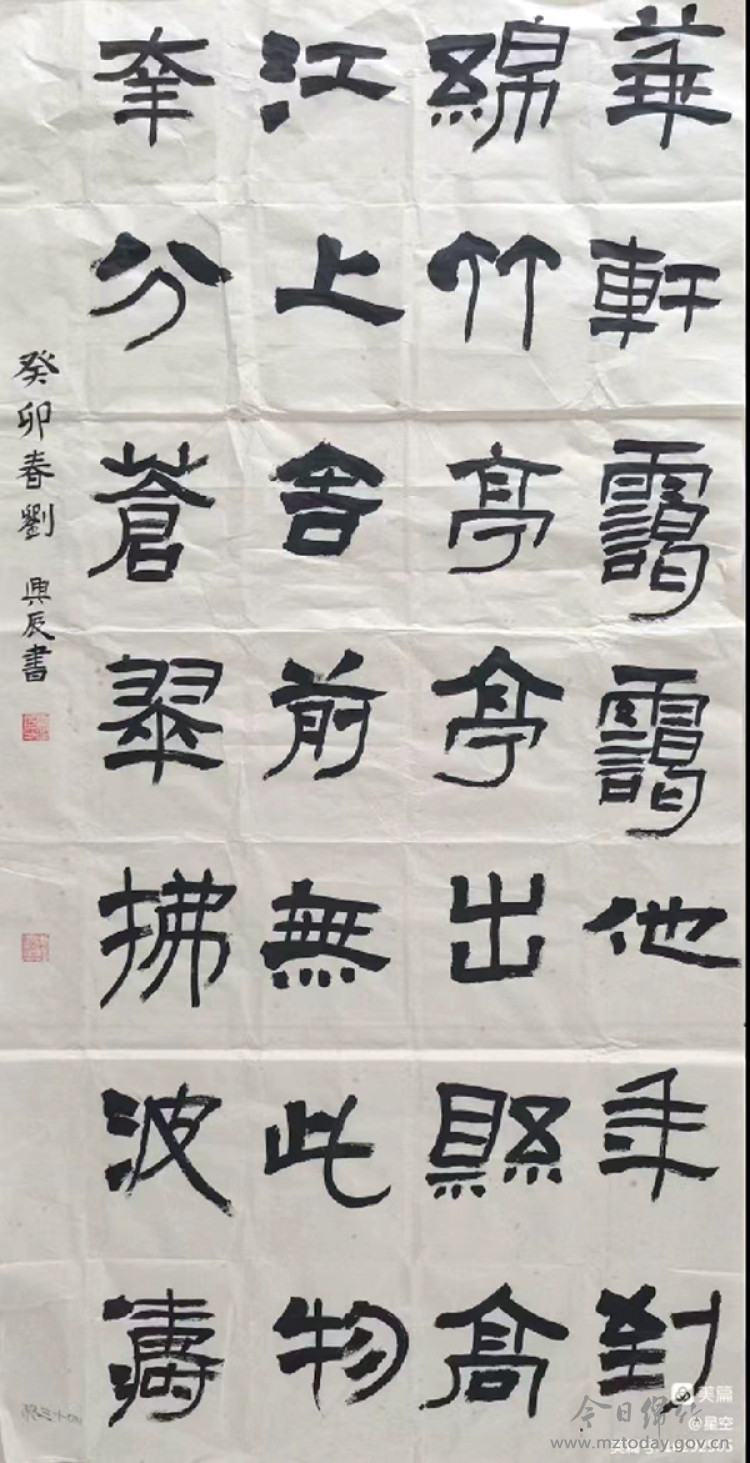 華軒靄靄他年到
綿竹亭亭出縣高
江上舍前無此物
幸分蒼翠拂波濤
癸卯春劉興辰書
美篇
@星空
今日绵竹
www.mztoday.gov.cn